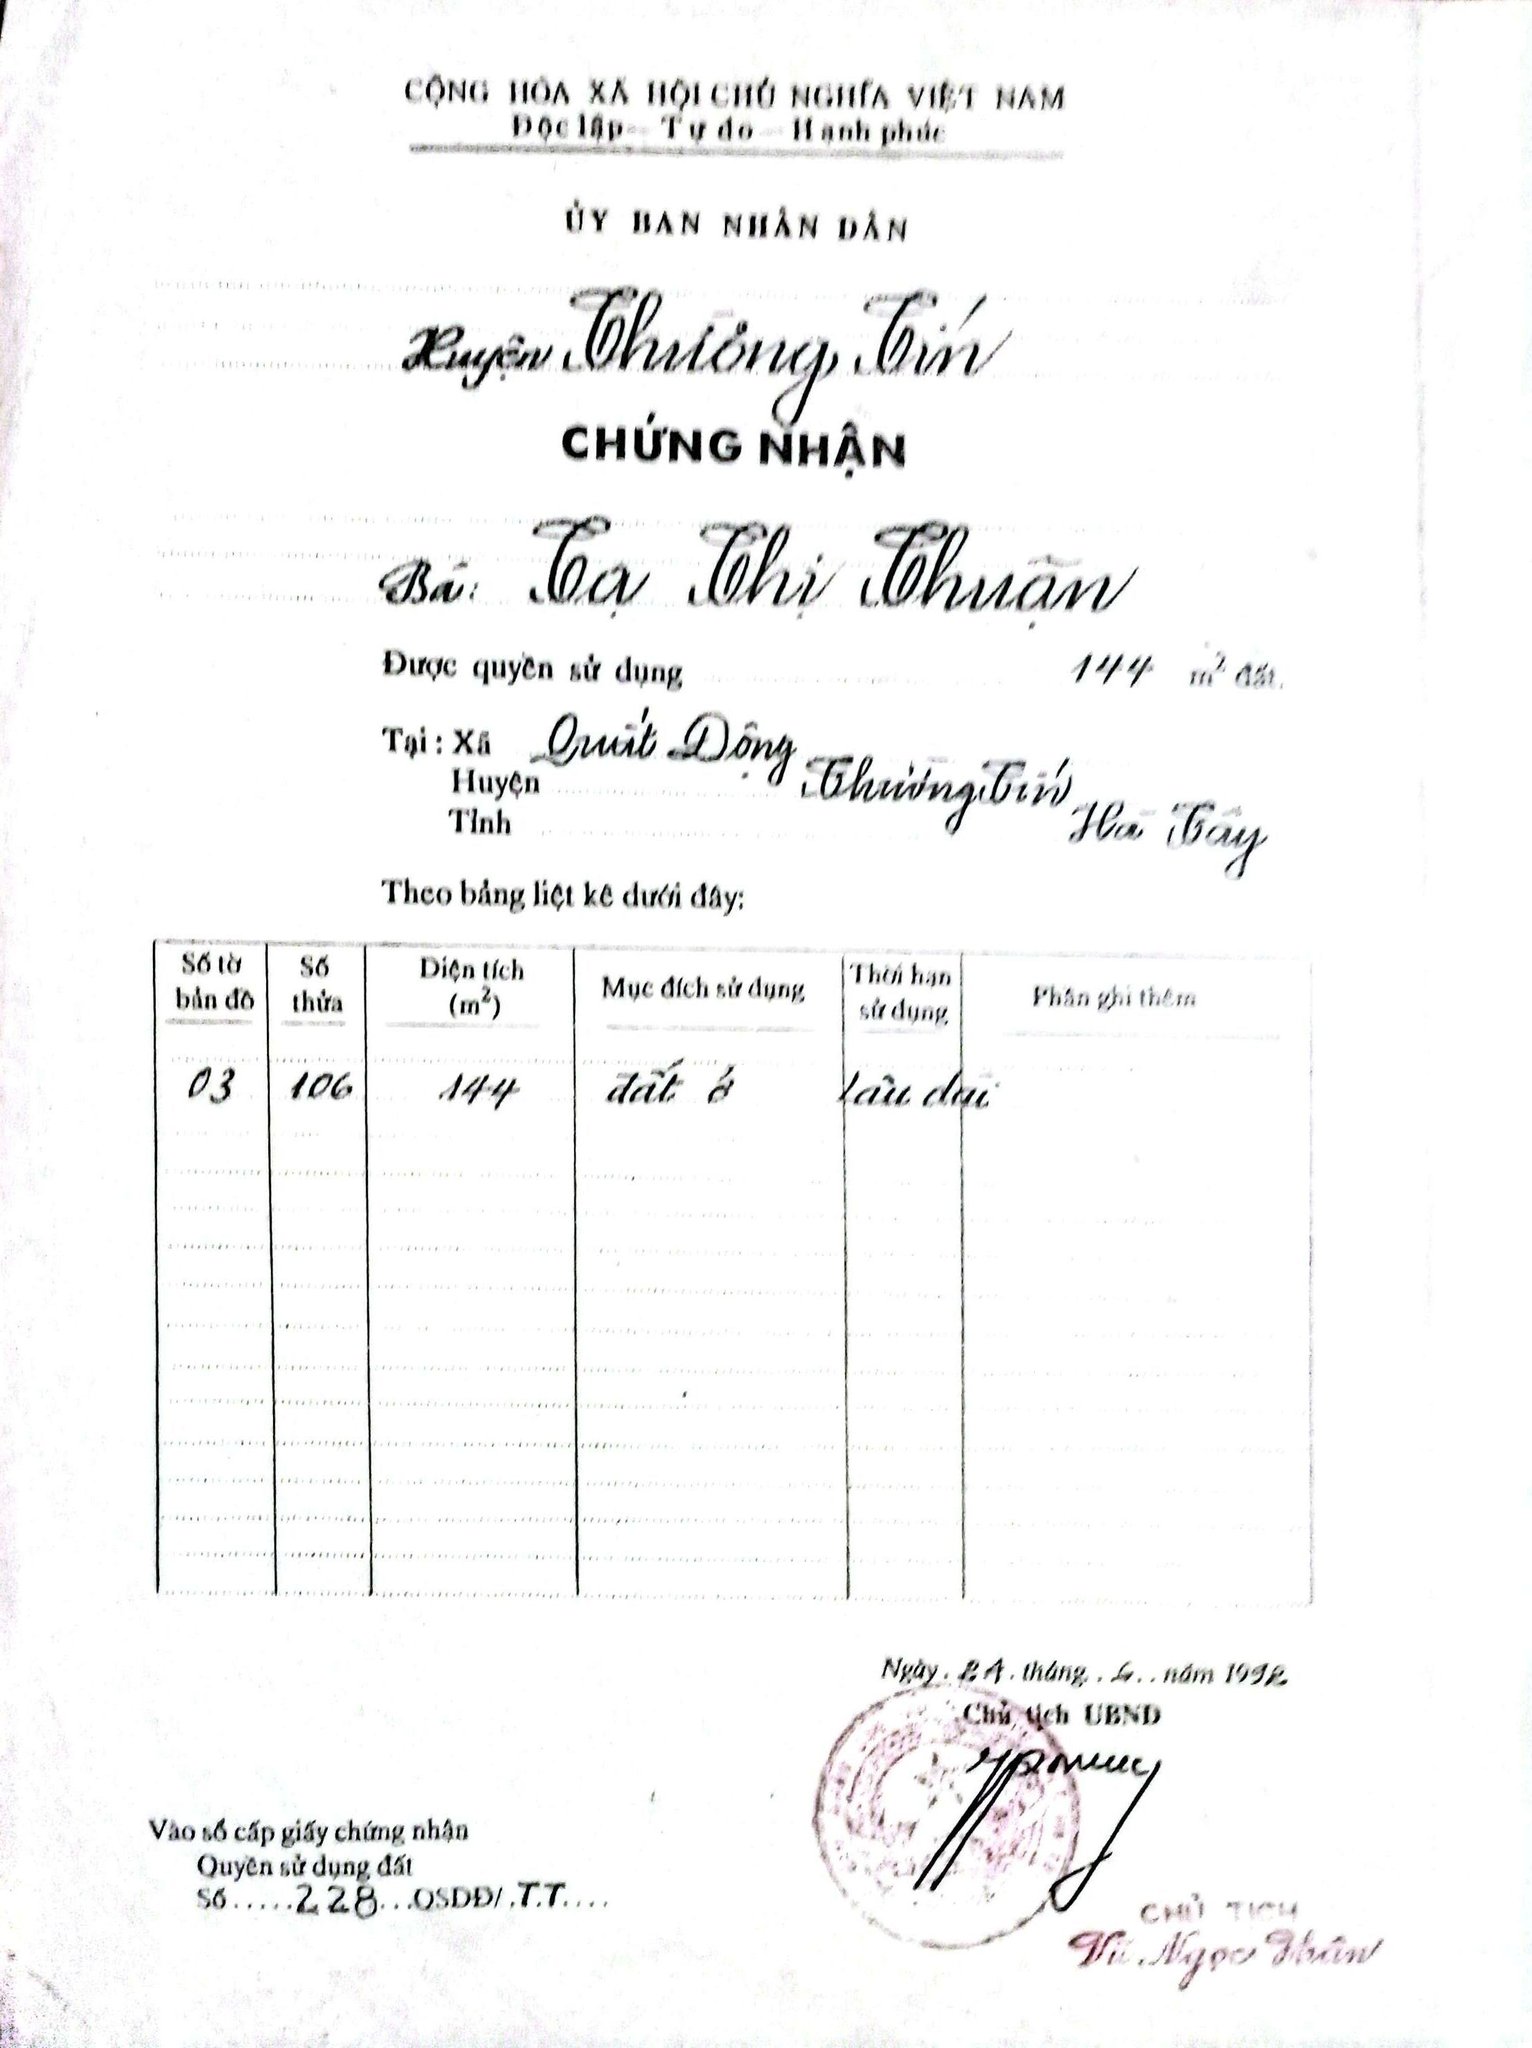 CỘNG HÒA XÃ HỘI CHỦ NGHĨA VIỆT NAM
Độc lập - Tự do - Hạnh phúc
ỦY BAN NHÂN DÂN
Huyện Thường Tín
CHỨNG NHẬN
Bà: Tạ Thị Thuận
Được quyền sử dụng 144 m² đất.
Tại: Xã Quất Động
Huyện Thường Tín
Tỉnh Hà Tây
Theo bảng liệt kê dưới đây:
Số tờ bản đồ Số thửa Diện tích (m²) Mục đích sử dụng Thời hạn sử dụng Phần ghi thêm
03 106 144 đất ở lâu dài
Ngày. 24. tháng. 6.. năm 1992
Chủ tịch UBND
Vào sổ cấp giấy chứng nhận
Quyền sử dụng đất
Số.....228...QSDĐ/.TT....
CHỦ TỊCH
Vũ Ngọc